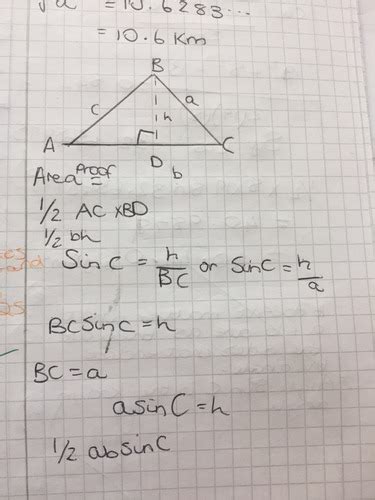 = 10.6283...
= 10.6 Km
B
c
a
h
A
C
D
b
Area Proof
1/2 AC x BD
1/2 bh
Sin C = h/BC or Sin C = h/a
BC Sin C = h
BC = a
a sin C = h
1/2 ab sin C